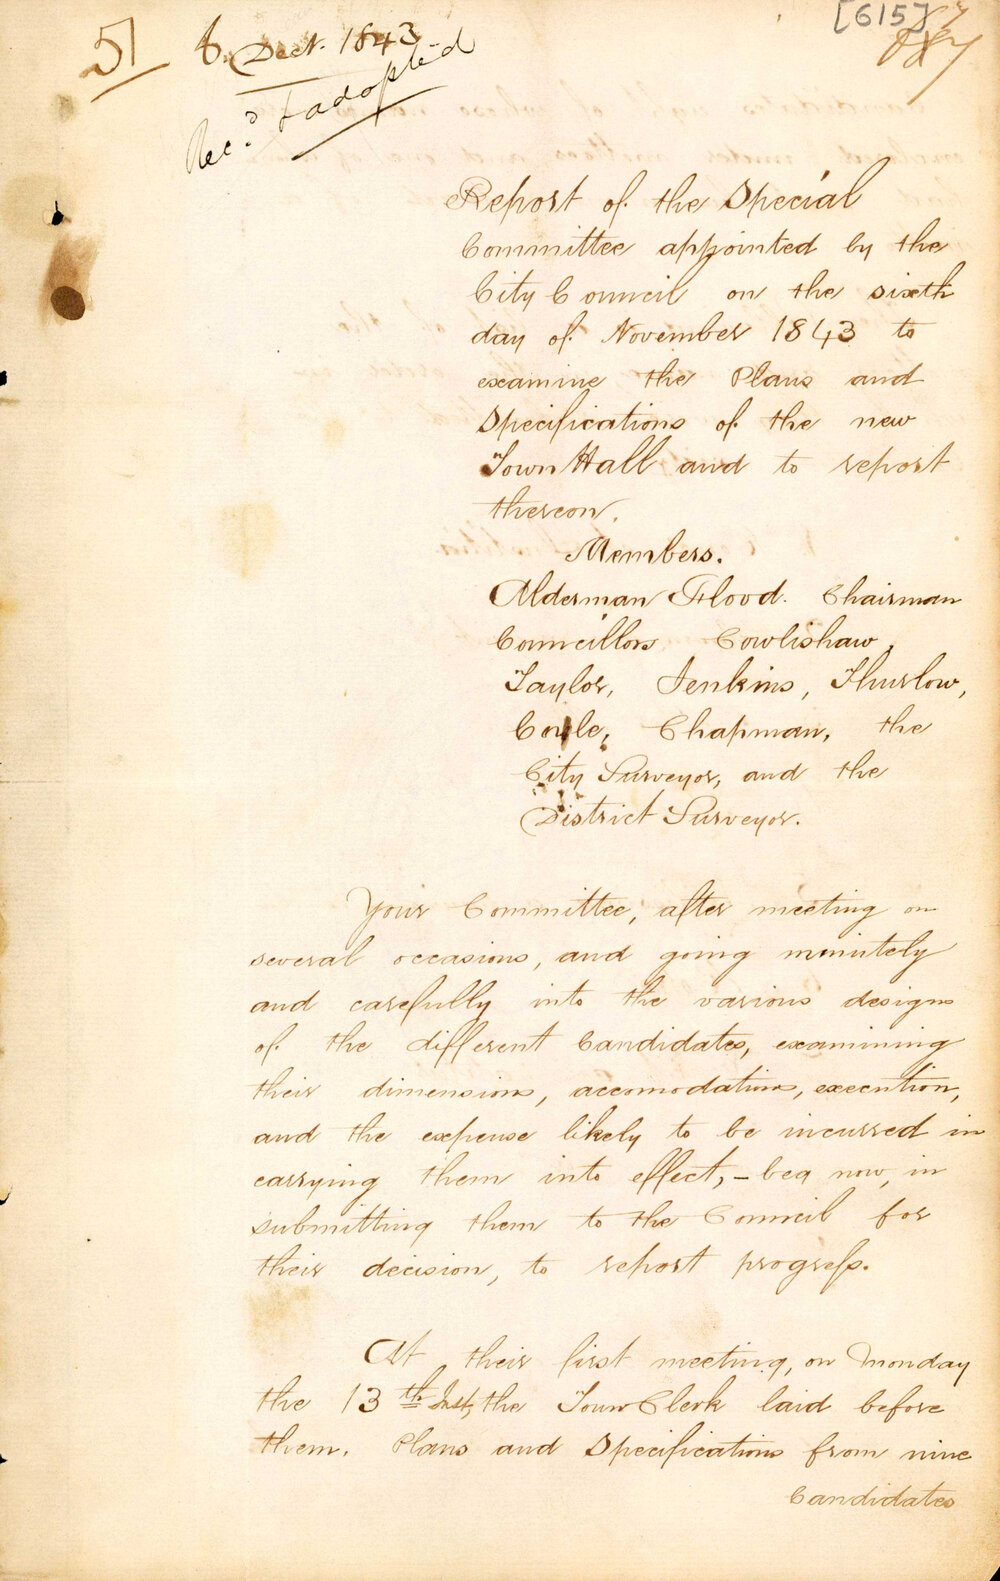 51
6. Decr. 1843
Rec.d & adopted
[615]
87
Report of the Special
Committee appointed by the
City Council on the sixth
day of November 1843 to
examine the Plans and
Specifications of the new
Town Hall and to report
thereon.
Members.
Alderman Flood. Chairman
Councillors Cowlishaw,
Taylor, Jenkins, Thurlow,
Coyle, Chapman, the
City Surveyor, and the
District Surveyor.
Your Committee, after meeting on
several occasions, and going minutely
and carefully into the various designs
of the different Candidates, examining
their dimensions, accomodations, execution,
and the expense likely to be incurred in
carrying them into effect, - beg now, in
submitting them to the Council for
their decision, to report progress.
At their first meeting, on Monday
the 13th Inst, the Town Clerk laid before
them, Plans and Specifications from nine
Candidates